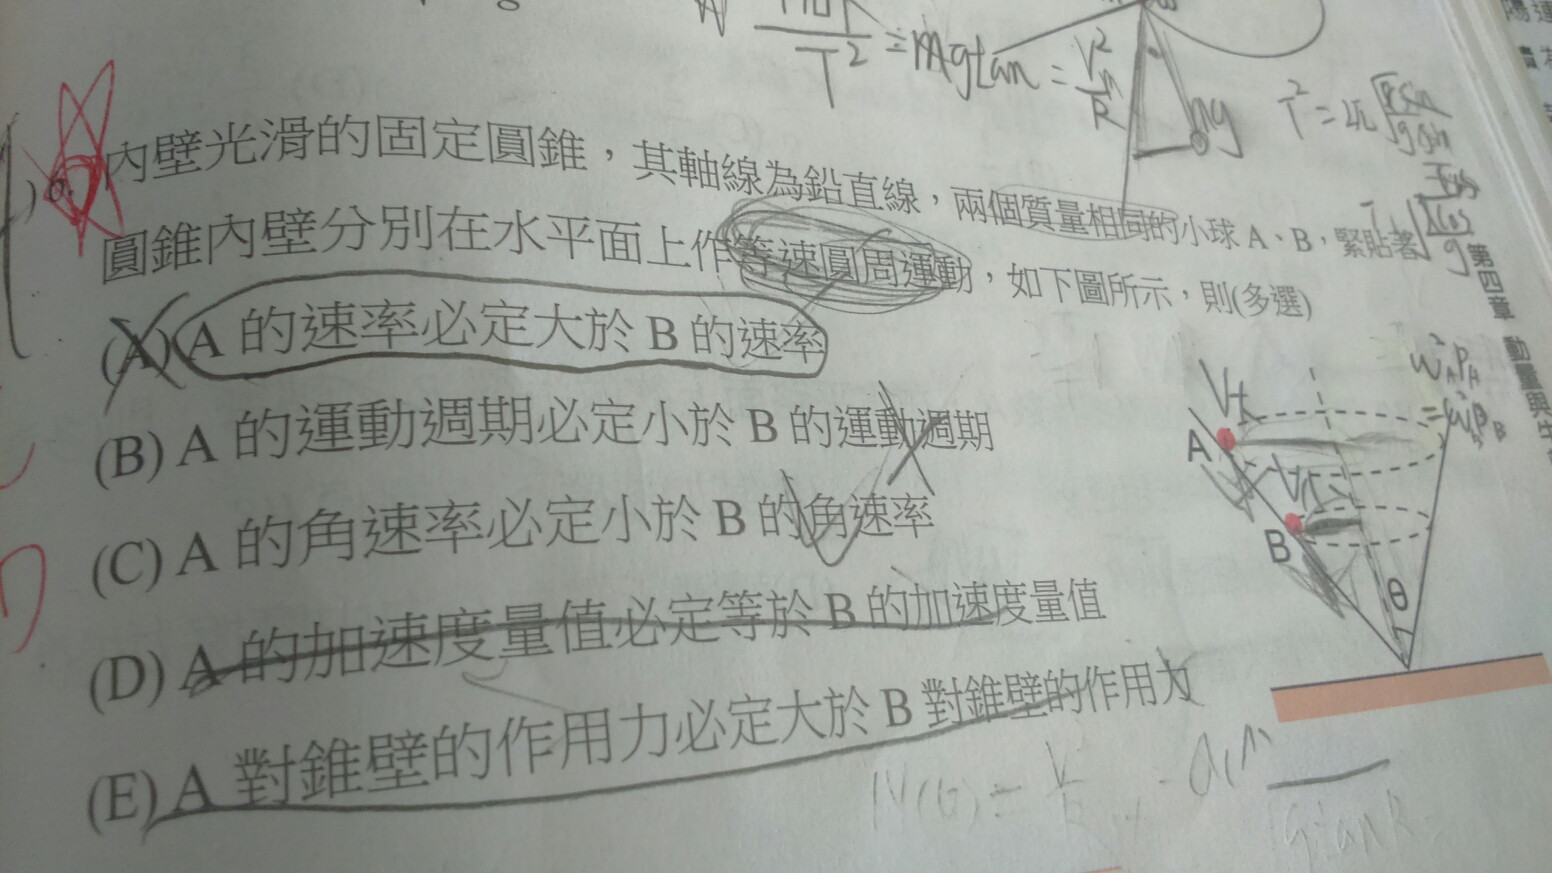 T² = mgtan = V²/R
mg
內壁光滑的固定圓錐，其軸線為鉛直線，兩個質量相同的小球 A、B，緊貼著
圓錐內壁分別在水平面上作等速圓周運動，如下圖所示，則(多選)
(A) A 的速率必定大於 B 的速率
(B) A 的運動週期必定小於 B 的運動週期
(C) A 的角速率必定小於 B 的角速率
(D) A 的加速度量值必定等於 B 的加速度量值
(E) A 對錐壁的作用力必定大於 B 對錐壁的作用力
A
B
θ
第四章